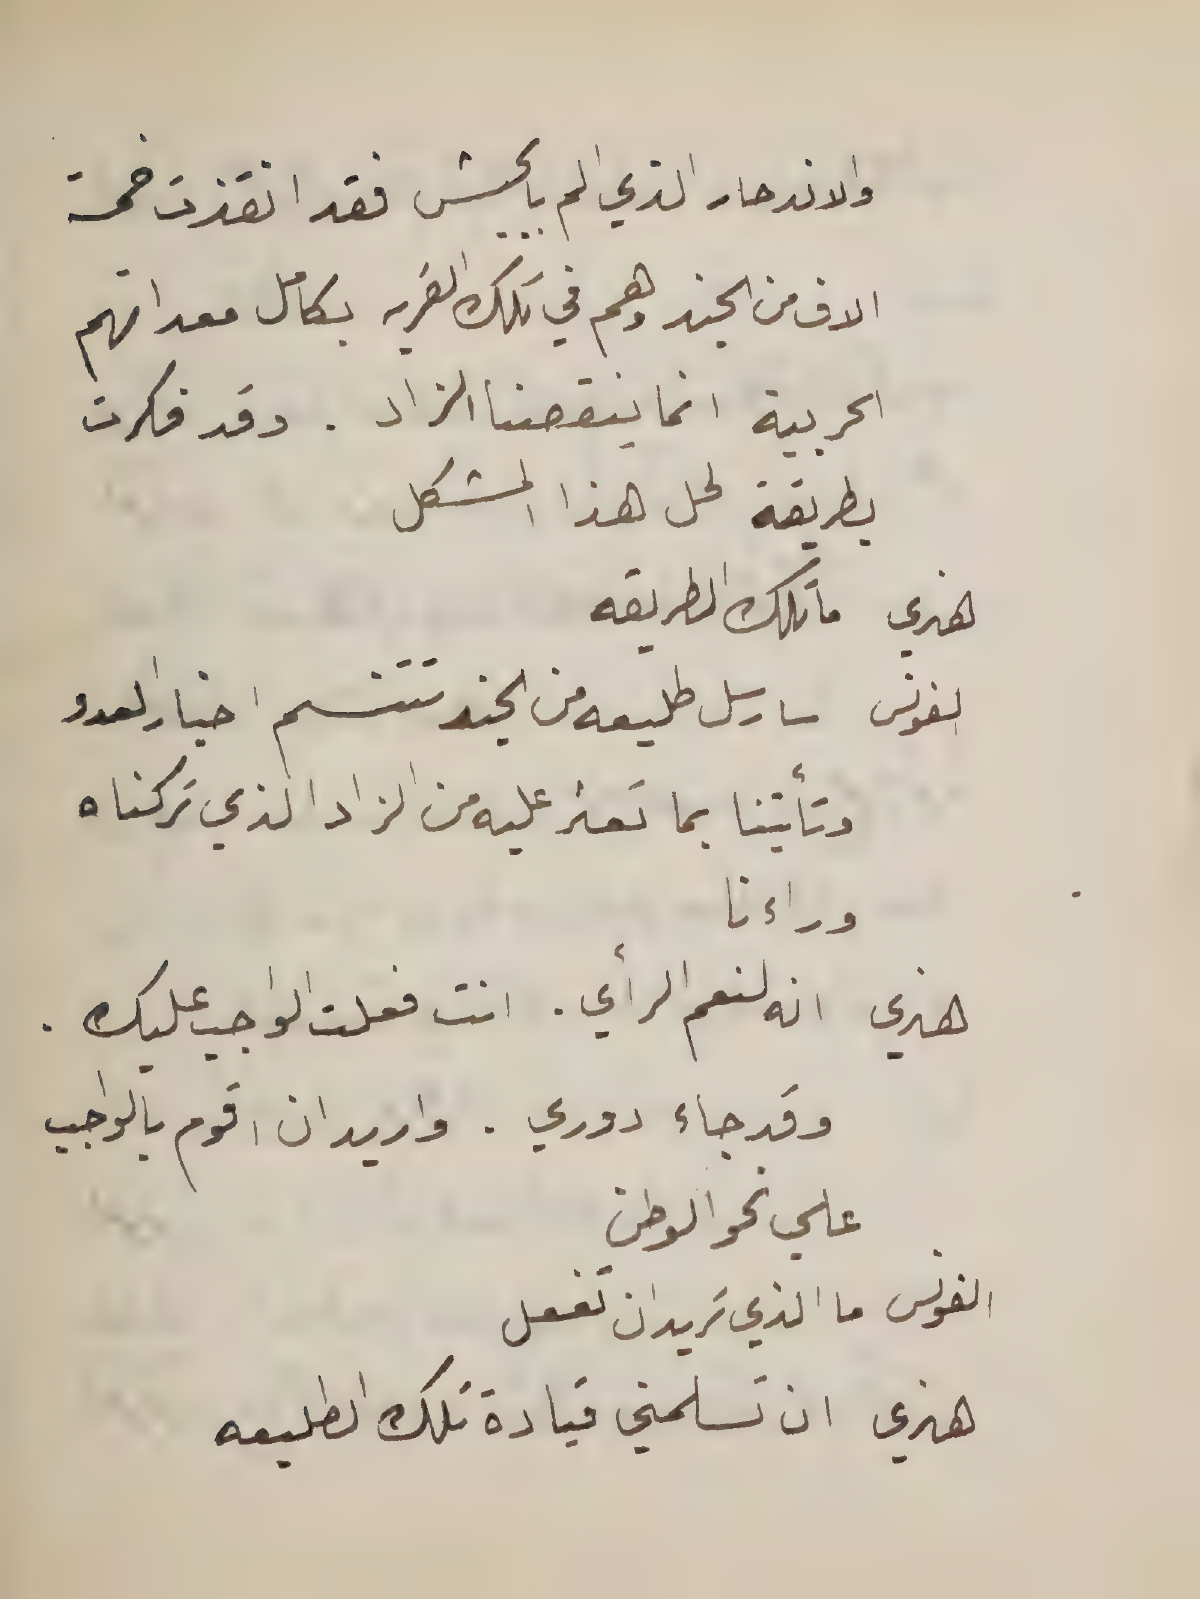 والاندحار الذي الم بالجيش فقد انقذت خمسة
الاف من الجند وهم في تلك القريه بكامل معداتهم
الحربية انما ينقصنا الزاد . وقد فكرت
بطريقة لحل هذا المشكل
هنري ما تلك الطريقه
الفونس سارسل طليعه من الجند تتنسم اخبار العدو
وتأتينا بما تعثر عليه من الزاد الذي تركناه
وراءنا
هنري انه لنعم الرأي . انت فعلت الواجب عليك .
وقد جاء دوري . واريد ان اقوم بالواجب
علي نحو الوطن
الفونس ما الذي تريد ان تفعل
هنري ان تسلمني قيادة تلك الطليعه